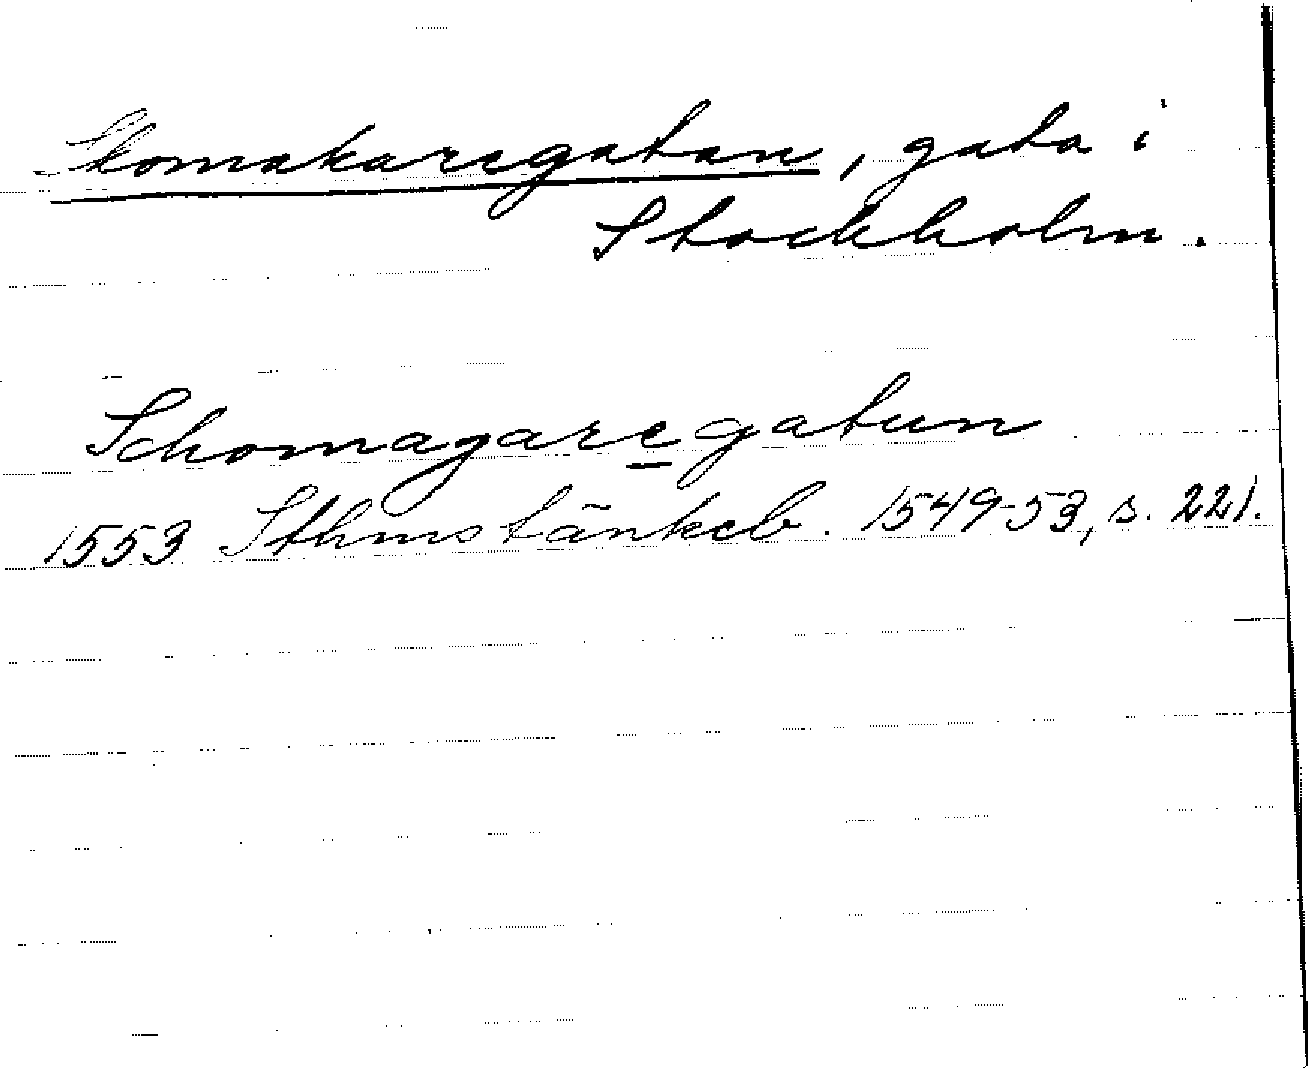 Skomakaregatan, gata i
Stockholm.
Schomagaregatun
1553 Sthmstänkeb. 1549-53, s. 221.